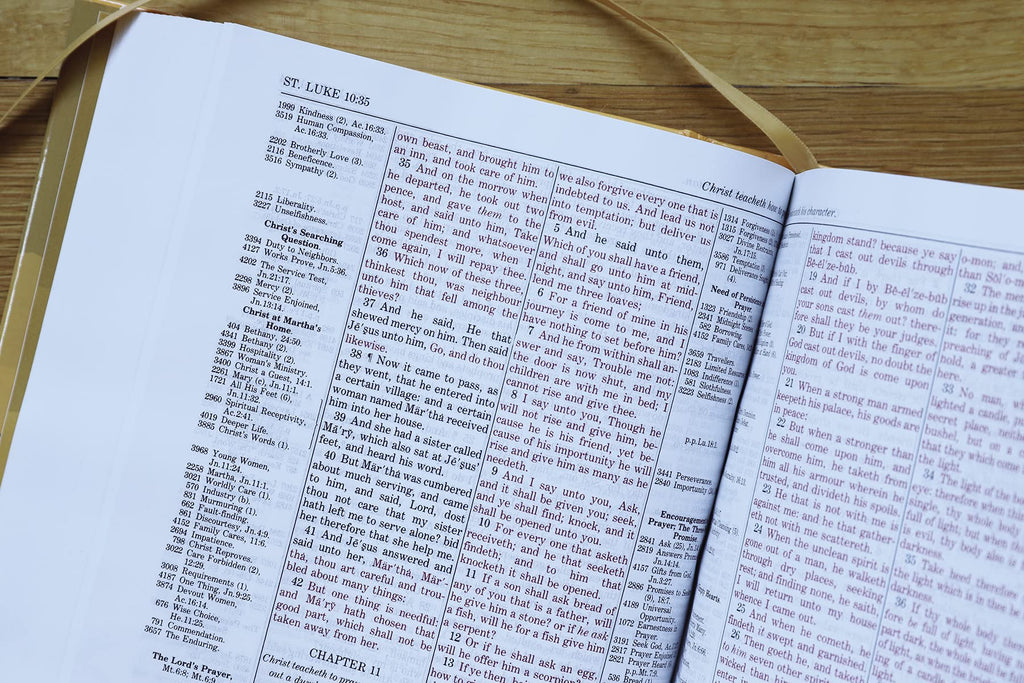 ST. LUKE 10:35
1999 Kindness (2), Ac.16:33.
3519 Human Compassion,
Ac.16:33.
2202 Brotherly Love (3).
2116 Beneficence.
3516 Sympathy (2).
2115 Liberality.
3227 Unselfishness.
Christ's Searching
Question.
3394 Duty to Neighbors.
4127 Works Prove, Jn.5:36.
4202 The Service Test,
Jn.21:17.
2298 Mercy (2).
3896 Service Enjoined,
Jn.13:14.
Christ at Martha's
Home.
404 Bethany, 24:50.
4341 Bethany (2).
2399 Hospitality (2).
3867 Woman's Ministry.
3400 Christ a Guest, 14:1.
2261 Mary (e), Jn.11:1.
1721 All His Feet (6),
Jn.11:32.
2960 Spiritual Receptivity,
Ac.2:41.
4019 Deeper Life.
3885 Christ's Words (1).
3968 Young Women,
Jn.11:24.
2258 Martha, Jn.11:1.
3021 Worldly Care (1).
570 Industry (5).
831 Murmuring (1).
662 Fault-finding.
861 Discourtesy, Jn.4:9.
4152 Family Cares, 11:6.
2694 Impatience.
798 Christ Reproves
3022 Care Forbidden (2),
12:29.
3008 Requirements (1).
4187 One Thing, Jn.9:25.
3874 Devout Women,
Ac.16:14.
676 Wise Choice,
He.11:25.
791 Commendation.
3657 The Enduring.
The Lord's Prayer,
Mt.6:8; Mt.6:9.
own beast, and brought him to
an inn, and took care of him.
35 And on the morrow when
he departed, he took out two
pence, and gave them to the
host, and said unto him, Take
care of him; and whatsoever
thou spendest more, when I
come again, I will repay thee.
36 Which now of these three,
thinkest thou, was neighbour
unto him that fell among the
thieves?
37 And he said, He that
shewed mercy on him. Then said
Jē´ṣus unto him, Go, and do thou
likewise.
38 ¶ Now it came to pass, as
they went, that he entered into
a certain village: and a certain
woman named Mär´thȧ received
him into her house.
39 And she had a sister called
Mā´rў, which also sat at Jē´ṣus'
feet, and heard his word.
40 But Mär´thȧ was cumbered
about much serving, and came
to him, and said, Lord, dost
thou not care that my sister
hath left me to serve alone? bid
her therefore that she help me.
41 And Jē´ṣus answered and
said unto her, Mär´thȧ, Mär´-
thȧ, thou art careful and trou-
bled about many things:
42 But one thing is needful:
and Mā´rў hath chosen that
good part, which shall not be
taken away from her.
CHAPTER 11
Christ teacheth to pray
Christ teacheth how to
we also forgive every one that is
indebted to us. And lead us not
into temptation; but deliver us
from evil.
5 And he said unto them,
Which of you shall have a friend,
and shall go unto him at mid-
night, and say unto him, Friend,
lend me three loaves;
6 For a friend of mine in his
journey is come to me, and I
have nothing to set before him?
7 And he from within shall an-
swer and say, Trouble me not:
the door is now shut, and my
children are with me in bed; I
cannot rise and give thee.
8 I say unto you, Though he
will not rise and give him, be-
cause he is his friend, yet be-
cause of his importunity he will
rise and give him as many as he
needeth.
9 And I say unto you, Ask,
and it shall be given you; seek,
and ye shall find; knock, and it
shall be opened unto you.
10 For every one that asketh
receiveth; and he that seeketh
findeth; and to him that
knocketh it shall be opened.
11 If a son shall ask bread of
any of you that is a father, will
he give him a stone? or if he ask
a fish, will he for a fish give him
a serpent?
12 Or if he shall ask an egg,
will he offer him a scorpion?
13 If ye then, being evil,
1314 Forgiveness
1315 Forgiveness
3027 Divine
Jn.17:15.
3586 Temptation
971 Deliverance
(4).
Need of
Prayer.
1323 Friendship
2341 Midnight
582 Borrowing
4152 Family Cares,
3659 Travellers.
2183 Limited
1083 Indifference
581 Slothfulness
3223 Selfishness
p.p. Lu.18:1.
3441 Perseverance.
2840 Importunity
Encouragement
Prayer; The
2841 Ask (25), Jn.14
2819 Answers
Jn.14:14.
4157 Gifts from God,
Jn.3:27.
2886 Promises to
(9), 18:7.
4189 Universal
Opportunity.
1072 Earnestness
Prayer.
3191 Seek God,
2817 Prayer Enjoined
2821 Prayer Heard
p.p. Mt.7:9.
536 Bread
his character.
kingdom stand? because ye say
that I cast out devils through
Bē-ĕl´ze-bŭb.
19 And if I by Bē-ĕl´ze-bŭb
cast out devils, by whom do
your sons cast them out? there-
fore shall they be your judges.
20 But if I with the finger of
God cast out devils, no doubt the
kingdom of God is come upon
you.
21 When a strong man armed
keepeth his palace, his goods are
in peace:
22 But when a stronger than
he shall come upon him, and
overcome him, he taketh from
him all his armour wherein he
trusted, and divideth his spoils.
23 He that is not with me is
against me: and he that gather-
eth not with me scattereth.
24 When the unclean spirit is
gone out of a man, he walketh
through dry places, seeking
rest; and finding none, he saith,
I will return unto my house
whence I came out.
25 And when he cometh, he
findeth it swept and garnished.
26 Then goeth he, and taketh
to him seven other spirits more
wicked than
32 The men
rise up in the
generation, and
it: for they
preaching of
hold, a greater
here.
33 No man,
lighted a candle,
secret place, neither
bushel, but on a
that they which come
the light.
34 The light of the body
eye: therefore when
single, thy whole body
of light; but when
evil, thy body also is
darkness.
35 Take heed therefore
the light which is in thee be
darkness.
36 If thy whole body
fore be full of light, having
part dark, the whole shall
of light, as when the bright